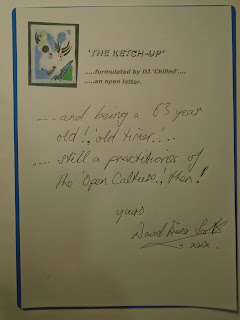 'THE KETCH-UP'
.....formulated by DJ.'Chilled'....
.....an open letter.
.... and being a 63 year
old!,'old timer.'...
.... still a practitioner of
the 'Open Culture.,' then!
yours
David
xxx.